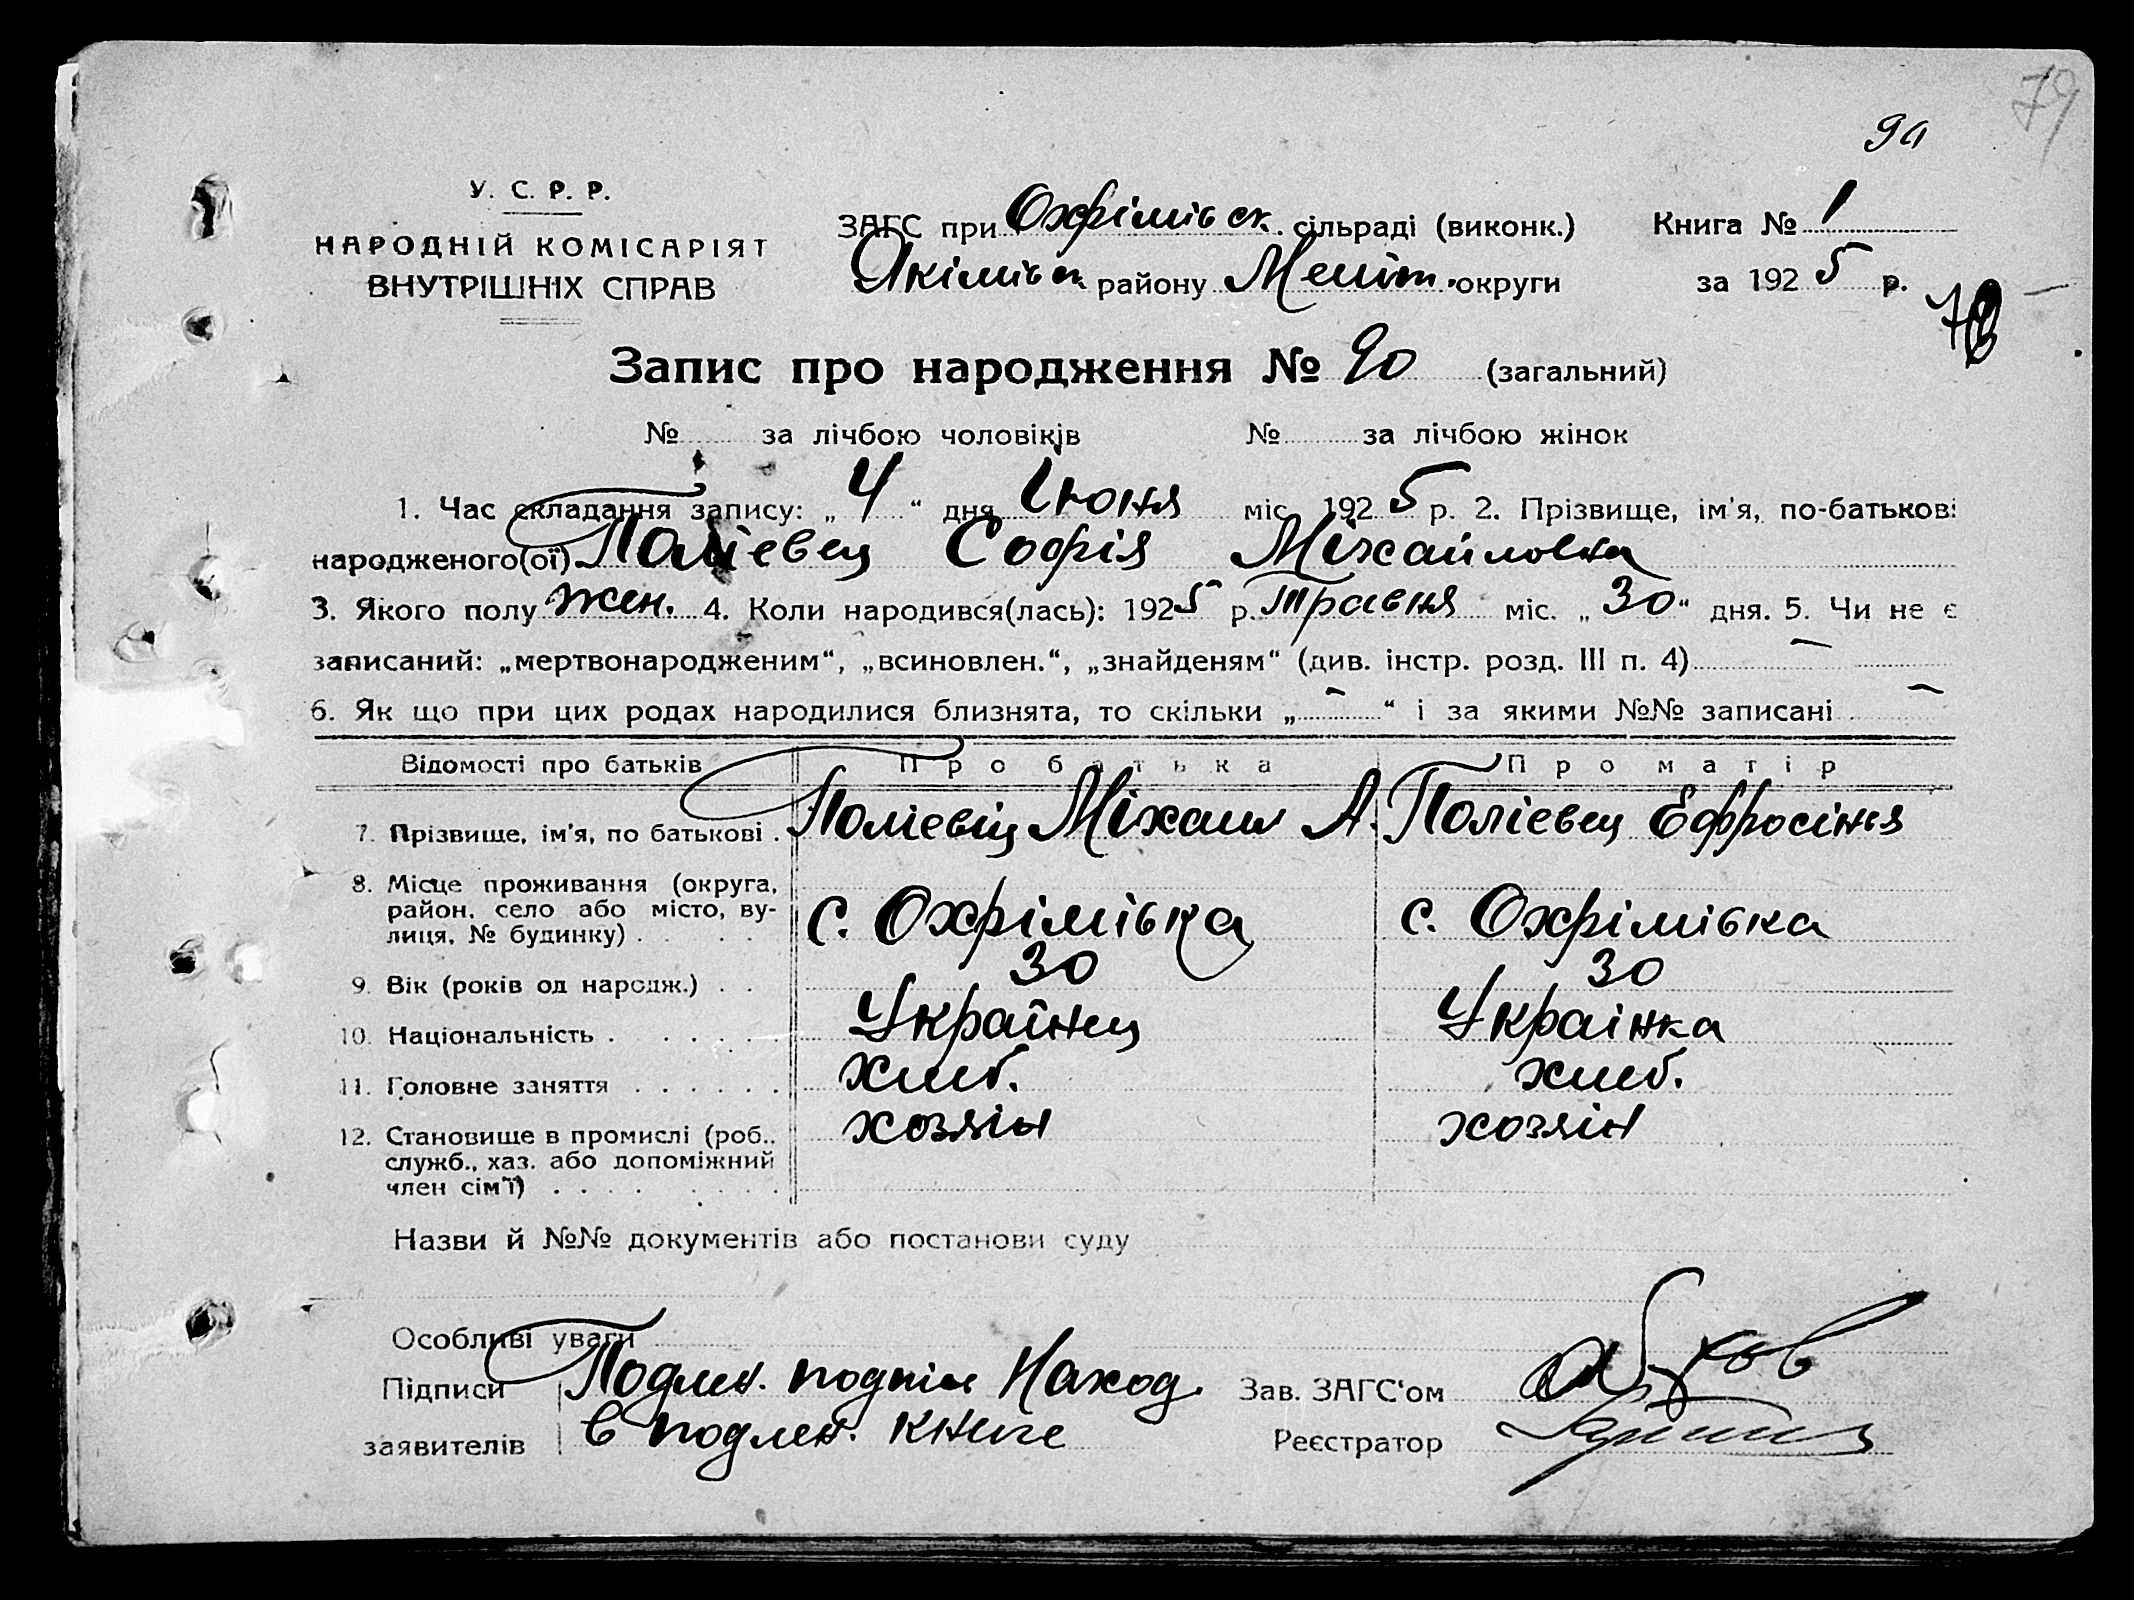 79
У. С. Р. Р.
НАРОДНІЙ КОМІСАРІЯТ
ВНУТРІШНІХ СПРАВ
ЗАГС при Охрімівск. сільраді (виконк.)
Якімівск району Меліт. округи
Книга № 1
за 1925 р.
Запис про народження № 90 (загальний)
№ за лічбою чоловіків № за лічбою жінок
1. Час складання запису: „4“ дня Іюня міс. 1925 р. 2. Прізвище, ім'я, по-батькові
народженого(ої) Полієвец Софія Міхайловна
3. Якого полу жен. 4. Коли народився(лась): 1925 р. Травня міс. „30“ дня. 5. Чи не є
записаний: „мертвонародженим“, „всиновлен.“, „знайденям“ (див. інстр. розд. III п. 4) —
6. Як що при цих родах народилися близнята, то скільки „—“ і за якими №№ записані —
Відомості про батьків Про батька Про матір
7. Прізвище, ім'я, по батькові . Полієвіц Міхаил А. Полієвец Ефросінія
8. Місце проживання (округа,
район, село або місто, ву-
лиця, № будинку) . . . . с. Охрімівка с. Охрімівка
9. Вік (років од народж.) . . 30 30
10. Національність . . . . . . Українец Украінка
11. Головне заняття . . . . . . хлиб. хлиб.
12. Становище в промислі (роб.,
служб., хаз. або допоміжний
член сім'ї) . . . . . . . . хозяін хозяін
Назви й №№ документів або постанови суду
Особливі уваги
Підписи Подлен. подпіси Наход.
заявителів в подлен. книге
Зав. ЗАГС'ом
Реєстратор